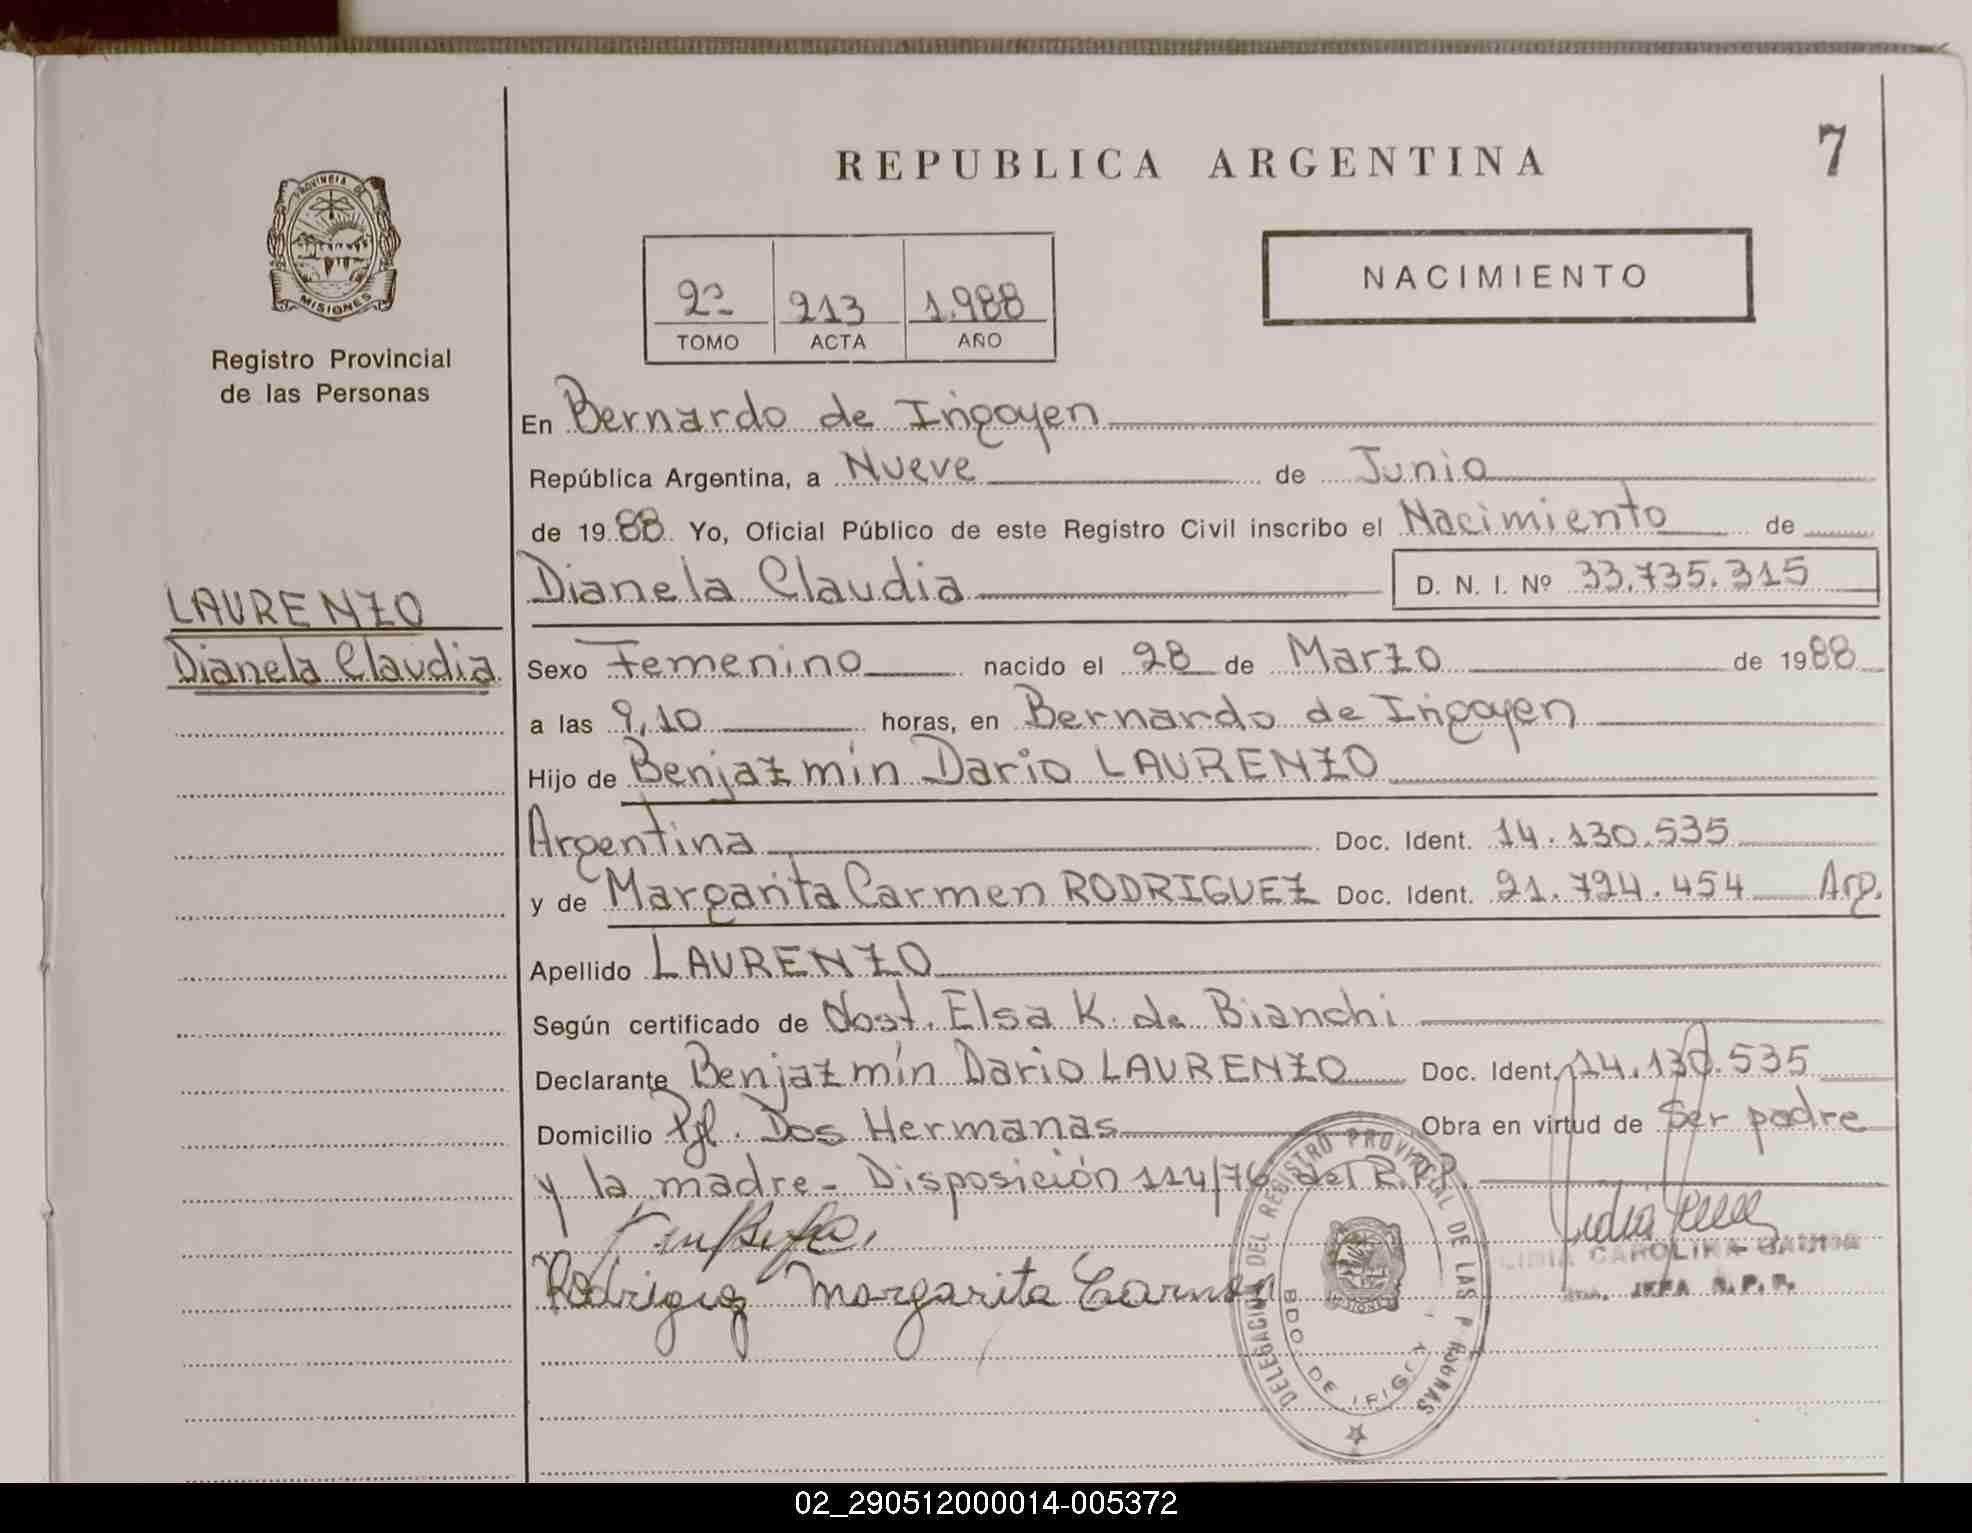 REPUBLICA ARGENTINA
7
PROVINCIA DE
MISIONES
Registro Provincial
de las Personas
NACIMIENTO
2º 213 1.988
TOMO ACTA AÑO
En Bernardo de Irigoyen
República Argentina, a Nueve de Junio
de 1988 Yo, Oficial Público de este Registro Civil inscribo el Nacimiento de
Dianela Claudia D. N. I. Nº 33.735.315
LAURENZO
Dianela Claudia
Sexo Femenino nacido el 28 de Marzo de 1988
a las 9,10 horas, en Bernardo de Irigoyen
Hijo de Benjazmín Dario LAURENZO
Argentina Doc. Ident. 14.130.535
y de Margarita Carmen RODRIGUEZ Doc. Ident. 21.724.454 Arg.
Apellido LAURENZO
Según certificado de Obst. Elsa K. de Bianchi
Declarante Benjazmín Dario LAURENZO Doc. Ident. 14.130.535
Domicilio Pjl. Dos Hermanas Obra en virtud de Ser padre
y la madre - Disposición 114/76 del R.P.P.
Rodriguez Margarita Carmen
LIDIA CAROLINA
JEFA R.P.P.
DELEGACION DEL REGISTRO PROVINCIAL DE LAS PERSONAS
BDO. DE IRIG
MISIONES
02_290512000014-005372